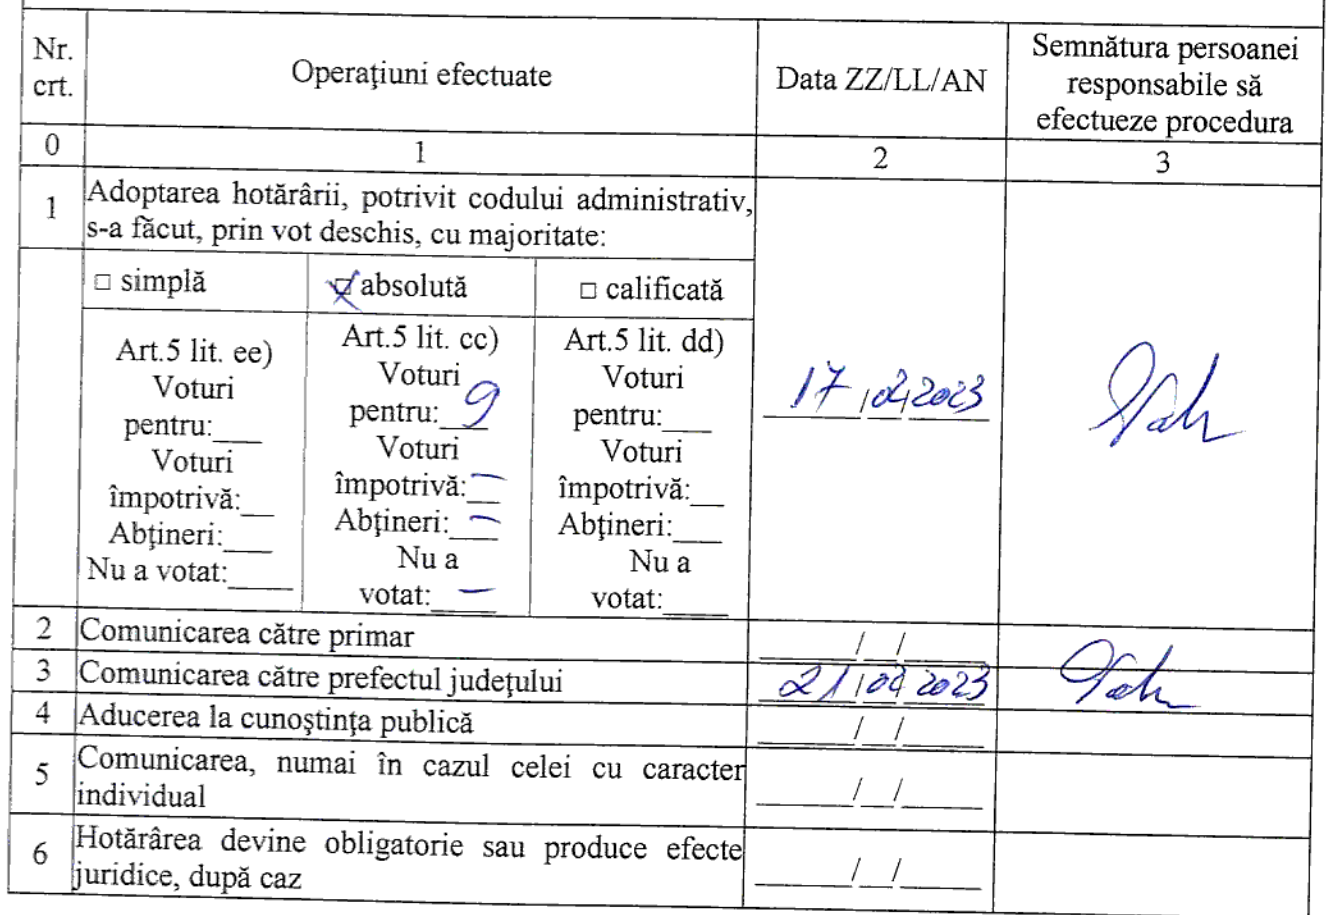 Nr. crt.
Operaţiuni efectuate
Data ZZ/LL/AN
Semnătura persoanei
responsabile să
efectueze procedura
0
1
2
3
1
Adoptarea hotărârii, potrivit codului administrativ,
s-a făcut, prin vot deschis, cu majoritate:
□ simplă
□ absolută
□ calificată
Art.5 lit. ee)
Voturi
pentru:___
Voturi
împotrivă:__
Abţineri:___
Nu a votat:____
Art.5 lit. cc)
Voturi
pentru: 9
Voturi
împotrivă: –
Abţineri: –
Nu a
votat: –
Art.5 lit. dd)
Voturi
pentru:___
Voturi
împotrivă:__
Abţineri:___
Nu a
votat:____
17/02/2023
2
Comunicarea către primar
____/_/____
3
Comunicarea către prefectul judeţului
21/02/2023
4
Aducerea la cunoştinţa publică
____/_/____
5
Comunicarea, numai în cazul celei cu caracter
individual
____/_/____
6
Hotărârea devine obligatorie sau produce efecte
juridice, după caz
____/_/____